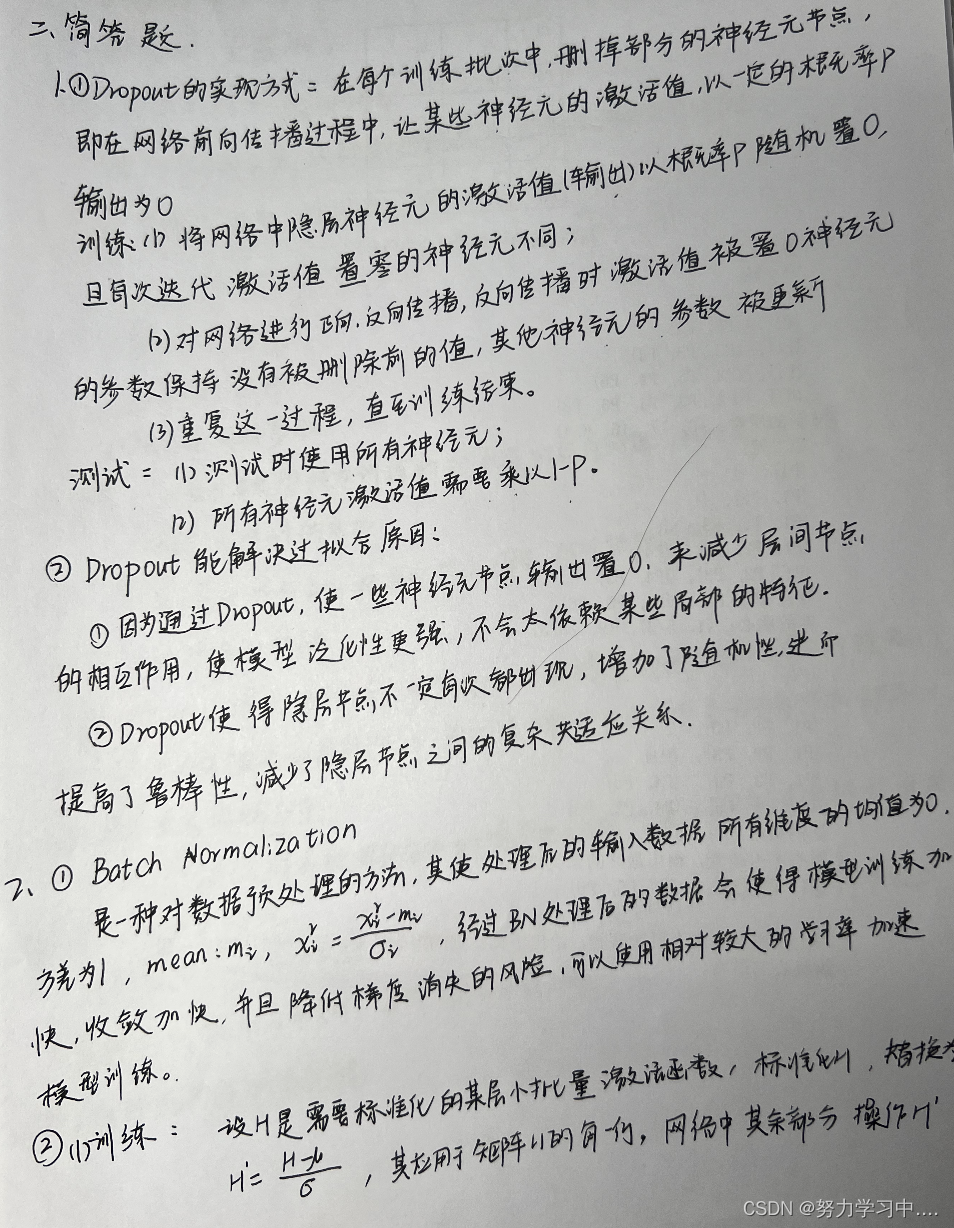 二、简答题.
1.①Dropout的实现方式=在每个训练批次中,删掉部分的神经元节点,
即在网络前向传播过程中,让某些神经元的激活值,以一定的概率P
输出为0
训练:(1)将网络中隐层神经元的激活值(输出)以概率P随机置0,
且每次迭代激活值置零的神经元不同;
(2)对网络进行正向.反向传播,反向传播时激活值被置0神经元
的参数保持没有被删除前的值,其他神经元的参数被更新
(3)重复这一过程,直至训练结束。
测试=(1)测试时使用所有神经元;
(2)所有神经元激活值需要乘以1-P。
② Dropout能解决过拟合原因:
①因为通过Dropout,使一些神经元节点输出置0.来减少层间节点
的相互作用,使模型泛化性更强,不会太依赖某些局部的特征.
②Dropout使得隐层节点不一定每次都出现,增加了随机性,进而
提高了鲁棒性,减少了隐层节点之间的复杂共适应关系.
2、① Batch Normalization
是一种对数据预处理的方法,其使处理后的输入数据所有维度的均值为0.
方差为1,mean:mᵢ,xᵢʳ=(xᵢʳ-mᵢ)/σᵢ,经过BN处理后的数据会使得模型训练加
快,收敛加快,并且降低梯度消失的风险,可以使用相对较大的学习率加速
模型训练。
②(1)训练:设H是需要标准化的某层小批量激活函数,标准化H,替换为
H'=(H-μ)/σ,其应用于矩阵H的每一行,网络中其余部分操作H'
CSDN @努力学习中....